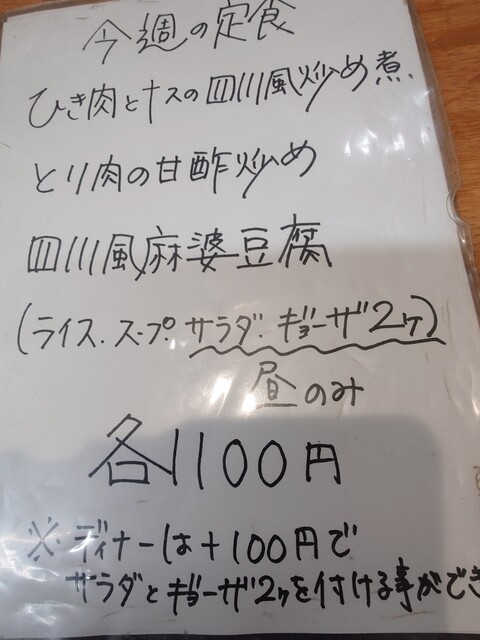 今週の定食
ひき肉とナスの四川風炒め煮
とり肉の甘酢炒め
四川風麻婆豆腐
(ライス.スープ.サラダ.ギョーザ2ヶ)
昼のみ
各1100円
※ディナーは+100円で
サラダとギョーザ2ヶを付ける事ができ